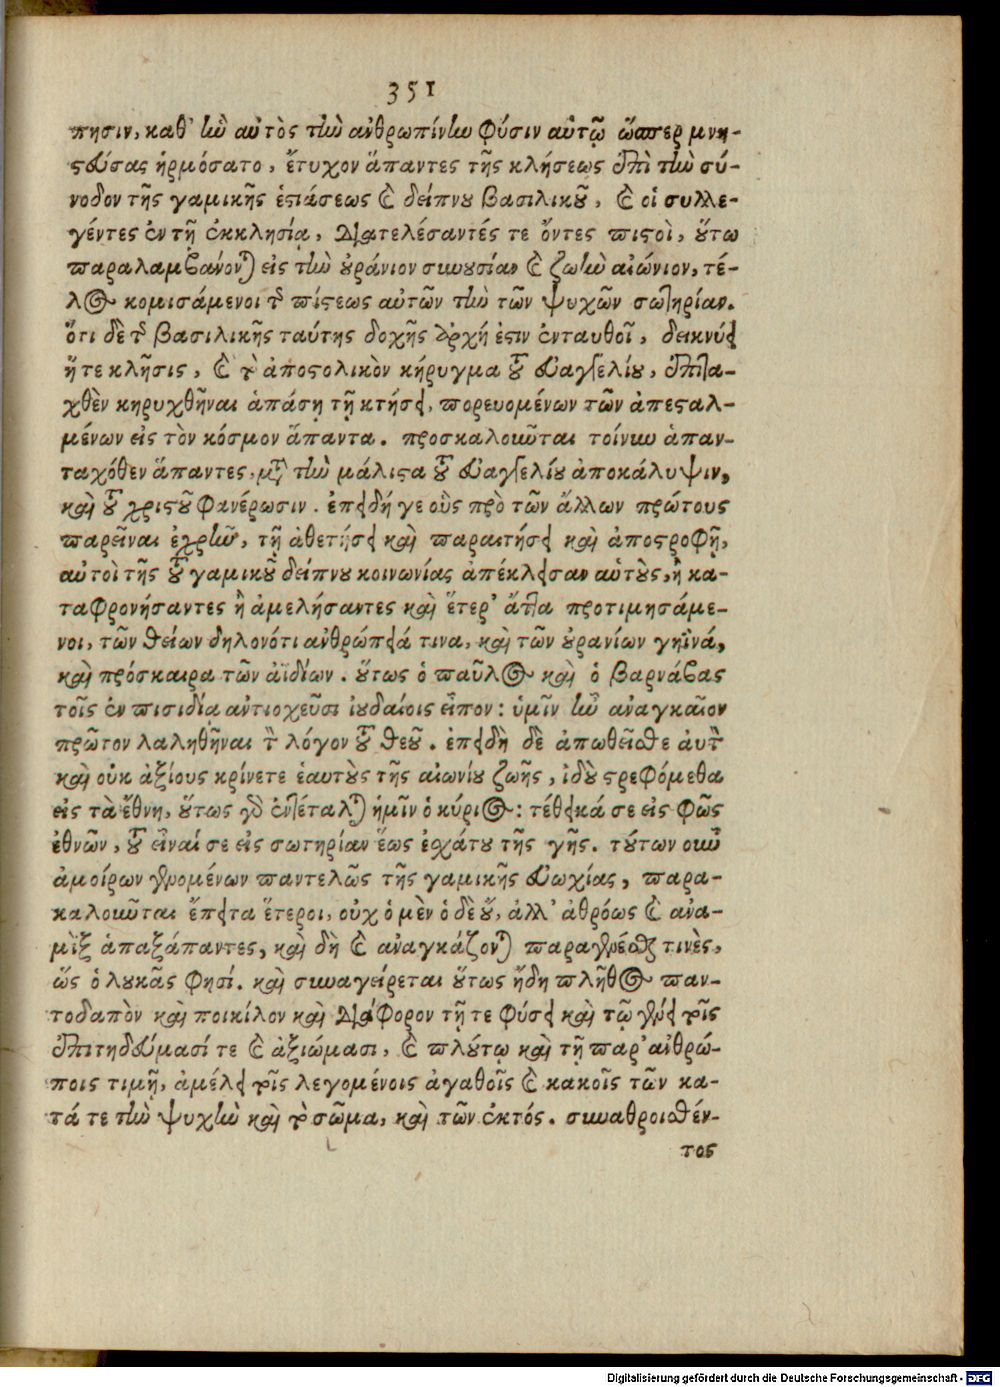 351
πησιν, καθ' ἣν αὐτὸς τὴν ἀνθρωπίνην φύσιν αὑτῷ ὥσπερ μνη-
στεύσας ἡρμόσατο, ἔτυχον ἅπαντες τῆς κλήσεως ἐπὶ τὴν σύ-
νοδον τῆς γαμικῆς ἑστιάσεως καὶ δείπνου βασιλικοῦ, καὶ οἱ συλλε-
γέντες ἐν τῇ ἐκκλησίᾳ, διατελέσαντές τε ὄντες πιστοὶ, οὕτω
παραλαμβάνονται εἰς τὴν οὐράνιον συνουσίαν καὶ ζωὴν αἰώνιον, τέ-
λος κομισάμενοι τῆς πίστεως αὐτῶν τὴν τῶν ψυχῶν σωτηρίαν.
ὅτι δὲ τῆς βασιλικῆς ταύτης δοχῆς ἀρχή ἐστιν ἐνταυθοῖ, δεικνύει
ἥ τε κλῆσις, καὶ τὸ ἀποστολικὸν κήρυγμα τοῦ εὐαγγελίου, ἐπιτα-
χθὲν κηρυχθῆναι ἁπάσῃ τῇ κτήσει, πορευομένων τῶν ἀπεσταλ-
μένων εἰς τὸν κόσμον ἅπαντα. προσκαλοῦνται τοίνυν ἁπαν-
ταχόθεν ἅπαντες, μετὰ τὴν μάλιστα τοῦ εὐαγγελίου ἀποκάλυψιν,
καὶ τοῦ χριστοῦ φανέρωσιν. ἐπειδή γε οὓς πρὸ τῶν ἄλλων πρώτους
παρεῖναι ἐχρῆν, τῇ ἀθετήσει καὶ παραιτήσει καὶ ἀποστροφῇ,
αὐτοὶ τῆς τοῦ γαμικοῦ δείπνου κοινωνίας ἀπέκλεισαν αὑτοὺς, ἢ κα-
ταφρονήσαντες ἢ ἀμελήσαντες καὶ ἕτερ' ἄττα προτιμησάμε-
νοι, τῶν θείων δηλονότι ἀνθρώπειά τινα, καὶ τῶν οὐρανίων γήϊνά,
καὶ πρόσκαιρα τῶν ἀϊδίων. οὕτως ὁ παῦλος καὶ ὁ βαρνάβας
τοῖς ἐν πισιδίᾳ ἀντιοχεῦσι ἰουδαίοις εἶπον: ὑμῖν ἦν ἀναγκαῖον
πρῶτον λαληθῆναι τὸν λόγον τοῦ θεοῦ. ἐπειδὴ δὲ ἀπωθεῖσθε αὐτὸν
καὶ οὐκ ἀξίους κρίνετε ἑαυτοὺς τῆς αἰωνίου ζωῆς, ἰδοὺ στρεφόμεθα
εἰς τὰ ἔθνη, οὕτως γὰρ ἐντέταλται ἡμῖν ὁ κύριος: τέθεικά σε εἰς φῶς
ἐθνῶν, τοῦ εἶναί σε εἰς σωτηρίαν ἕως ἐσχάτου τῆς γῆς. τούτων οὖν
ἀμοίρων γενομένων παντελῶς τῆς γαμικῆς εὐωχίας, παρα-
καλοῦνται ἔπειτα ἕτεροι, οὐχ ὁ μὲν ὁ δὲ οὔ, ἀλλ' ἀθρόως καὶ ἀνα-
μὶξ ἁπαξάπαντες, καὶ δὴ καὶ ἀναγκάζονται παραγενέσθαι τινὲς,
ὥς ὁ λουκᾶς φησί. καὶ συναγείρεται οὕτως ἤδη πλῆθος παν-
τοδαπὸν καὶ ποικίλον καὶ διάφορον τῇ τε φύσει καὶ τῷ γένει τοῖς
ἐπιτηδεύμασί τε καὶ ἀξιώμασι, καὶ πλούτῳ καὶ τῇ παρ' ἀνθρώ-
ποις τιμῇ, ἀμέλει τοῖς λεγομένοις ἀγαθοῖς καὶ κακοῖς τῶν κα-
τά τε τὴν ψυχὴν καὶ τὸ σῶμα, καὶ τῶν ἐκτός. συναθροισθέν-
τος
Digitalisierung gefördert durch die Deutsche Forschungsgemeinschaft - DFG